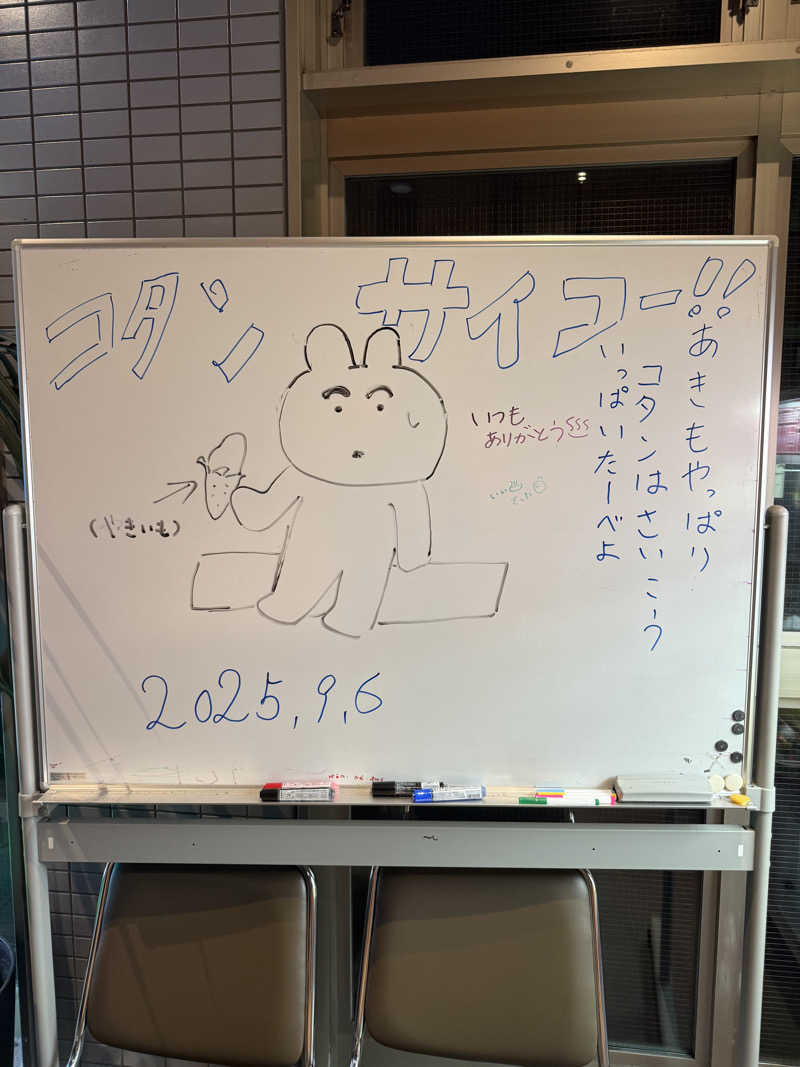 コタン サイコー!!
あきもやっぱり
コタンはさいこう
いっぱいたーべよ
いつも
ありがとう
(やきいも)
2025,9,6